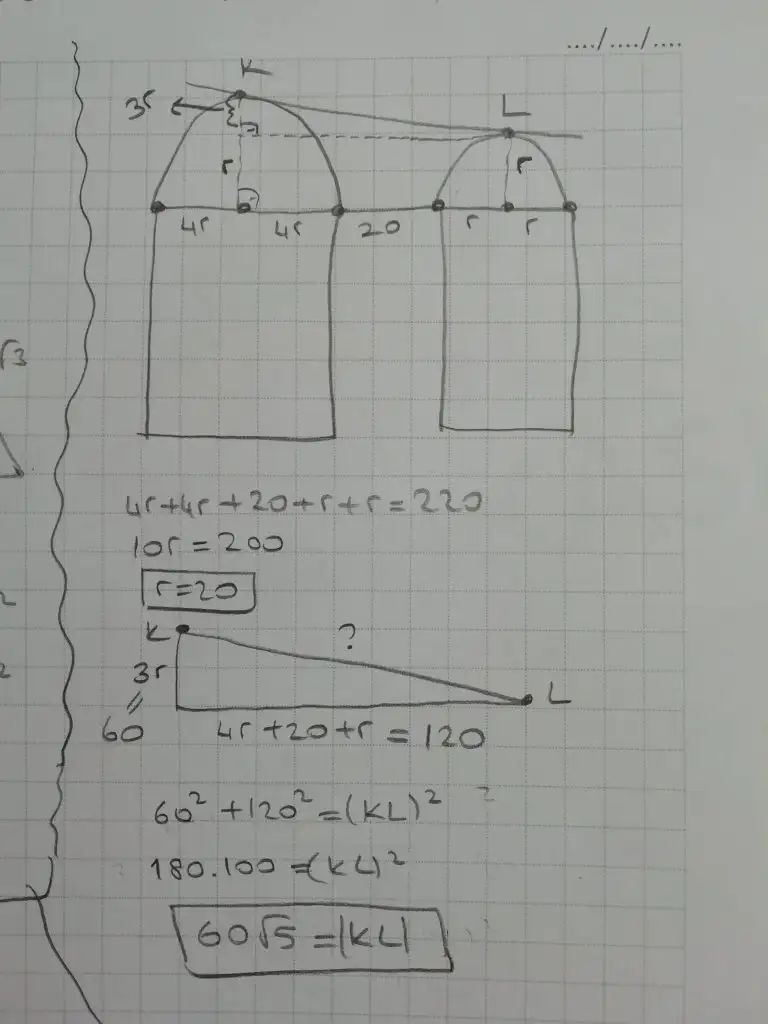 ..../..../....
K
3r
L
r
r
4r 4r 20 r r
√3
4r+4r+20+r+r=220
10r=200
r=20
K ?
3r
L
60 4r+20+r=120
60²+120²=(KL)²
180.100=(KL)²
60√5=|KL|